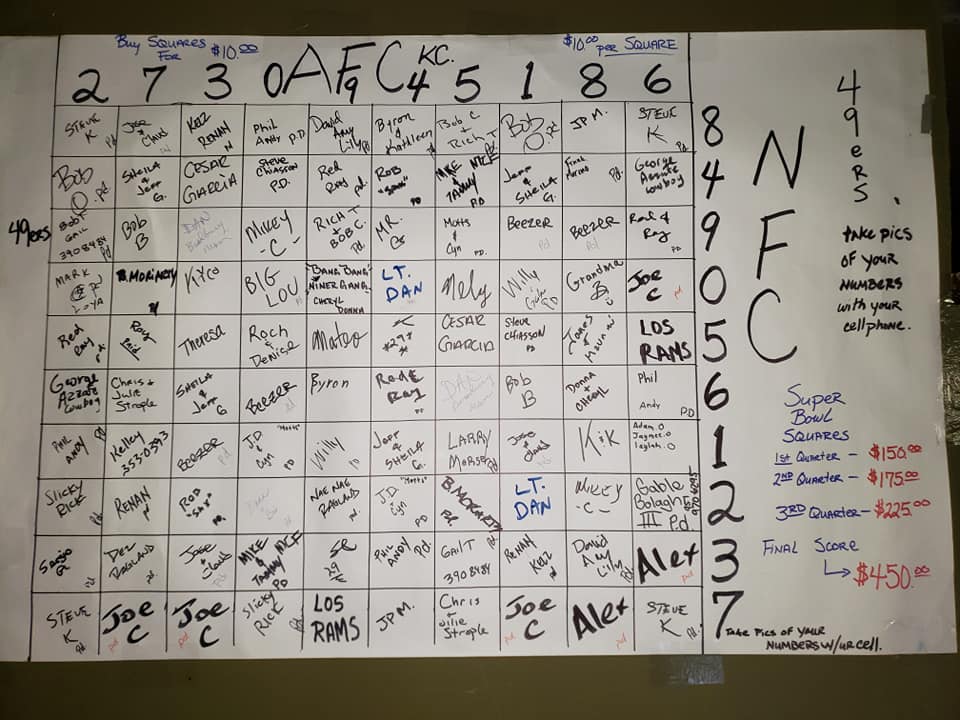 Buy Squares
For $10.00
AFC KC.
$10.00
per Square
2 7 3 0 9 4 5 1 8 6
STEVE K Pd
Jose & Claud
KEZ RENAN
Phil Andy P.D
David Amy Lily Pd
Byron & Kathleen
Bob C + Rich T Pd.
Bob O. Pd
JP M.
STEVE K Pd.
8
Bob O. Pd
SHEILA & Jeff G.
CESAR GARCIA
Steve CHIASSON P.D.
Red Ray Pd.
ROB "SAX" PD
MIKE NICE & TAMMY P.D
Jeff & SHEILA G.
Pd.
George Azzate Cowboy
4
49ers
Bob T GAIL 390 8484 Pd
Bob B
DAN
MIKEY -C-
RICH T BOB C. Pd
MR.
Motts & Cyn PD.
BEEZER Pd
BEEZER Pd
Red & Ray PD
9
MARK Pd LOYA
B. MORIARTY
BIG LOU
"BANG BANG" NINER GANG. CHERYL DONNA
LT. DAN
Mely
Willy Pd
Grandma B
JOE C Pd
0
Red Ray
Roy Paid
Theresa
Roch & Denise
Mateo
CESAR GARCIA
Steve CHIASSON PD
James
LOS RAMS
5
George Azzate Cowboy
Chris + Julie Strople
SHEILA & Jeff G
BEEZER Pd
Byron
Red & Ray PD
Bob B
Donna + Cheryl
Phil Andy P.D
6
PHIL ANDY Pd
Kelley 353-0393
BEEZER Pd
J.D. "Motts" & Cyn PD
Willy
Jeff & SHEILA G.
LARRY MORSE Pd
Jose & Claud
K&K
Adam.O Jaynee.O Taylah.O
1
Slicky RICK Pd.
RENAN
ROB "SAX" PD.
NAE NAE RAGLAND
J.D. "Motts" & Cyn PD
B. MORIARTY Pd.
LT. DAN
MIKEY -C-
Gable Bolaghi III P.d.
2
Sergio G Pd
DEZ RAGLAND Pd.
Jose & Claud Pd
MIKE & TAMMY NICE PD
29
PHIL ANDY Pd.
GAIL T 390 8484 Pd
RENAN KEZ Pd
David Amy Lily Pd.
Alex Pd
3
STEVE K Pd.
JOE C Pd
JOE C Pd
Slicky RICK Pd
LOS RAMS
JP M.
Chris + Julie Strople
JOE C Pd
Alex Pd
STEVE K Pd.
7
NFC
49ers.
take pics
of your
numbers
with your
cellphone.
Super
Bowl
Squares
1st Quarter - $150.00
2nd Quarter - $175.00
3RD Quarter - $225.00
Final Score
$450.00
Take Pics of your
Numbers w/ur cell.